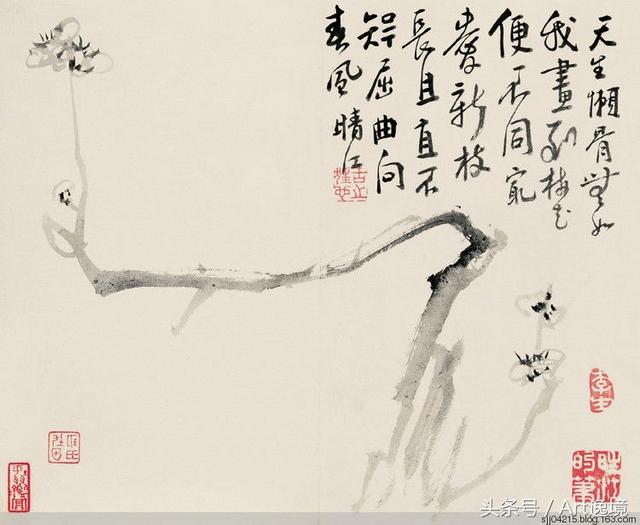 天生懶骨無如
我畫到梅花
便不同最
愛新枝
長且直不
知屈曲向
春風晴江
头条号 / Art逸境
sjj04215.blog.163.com